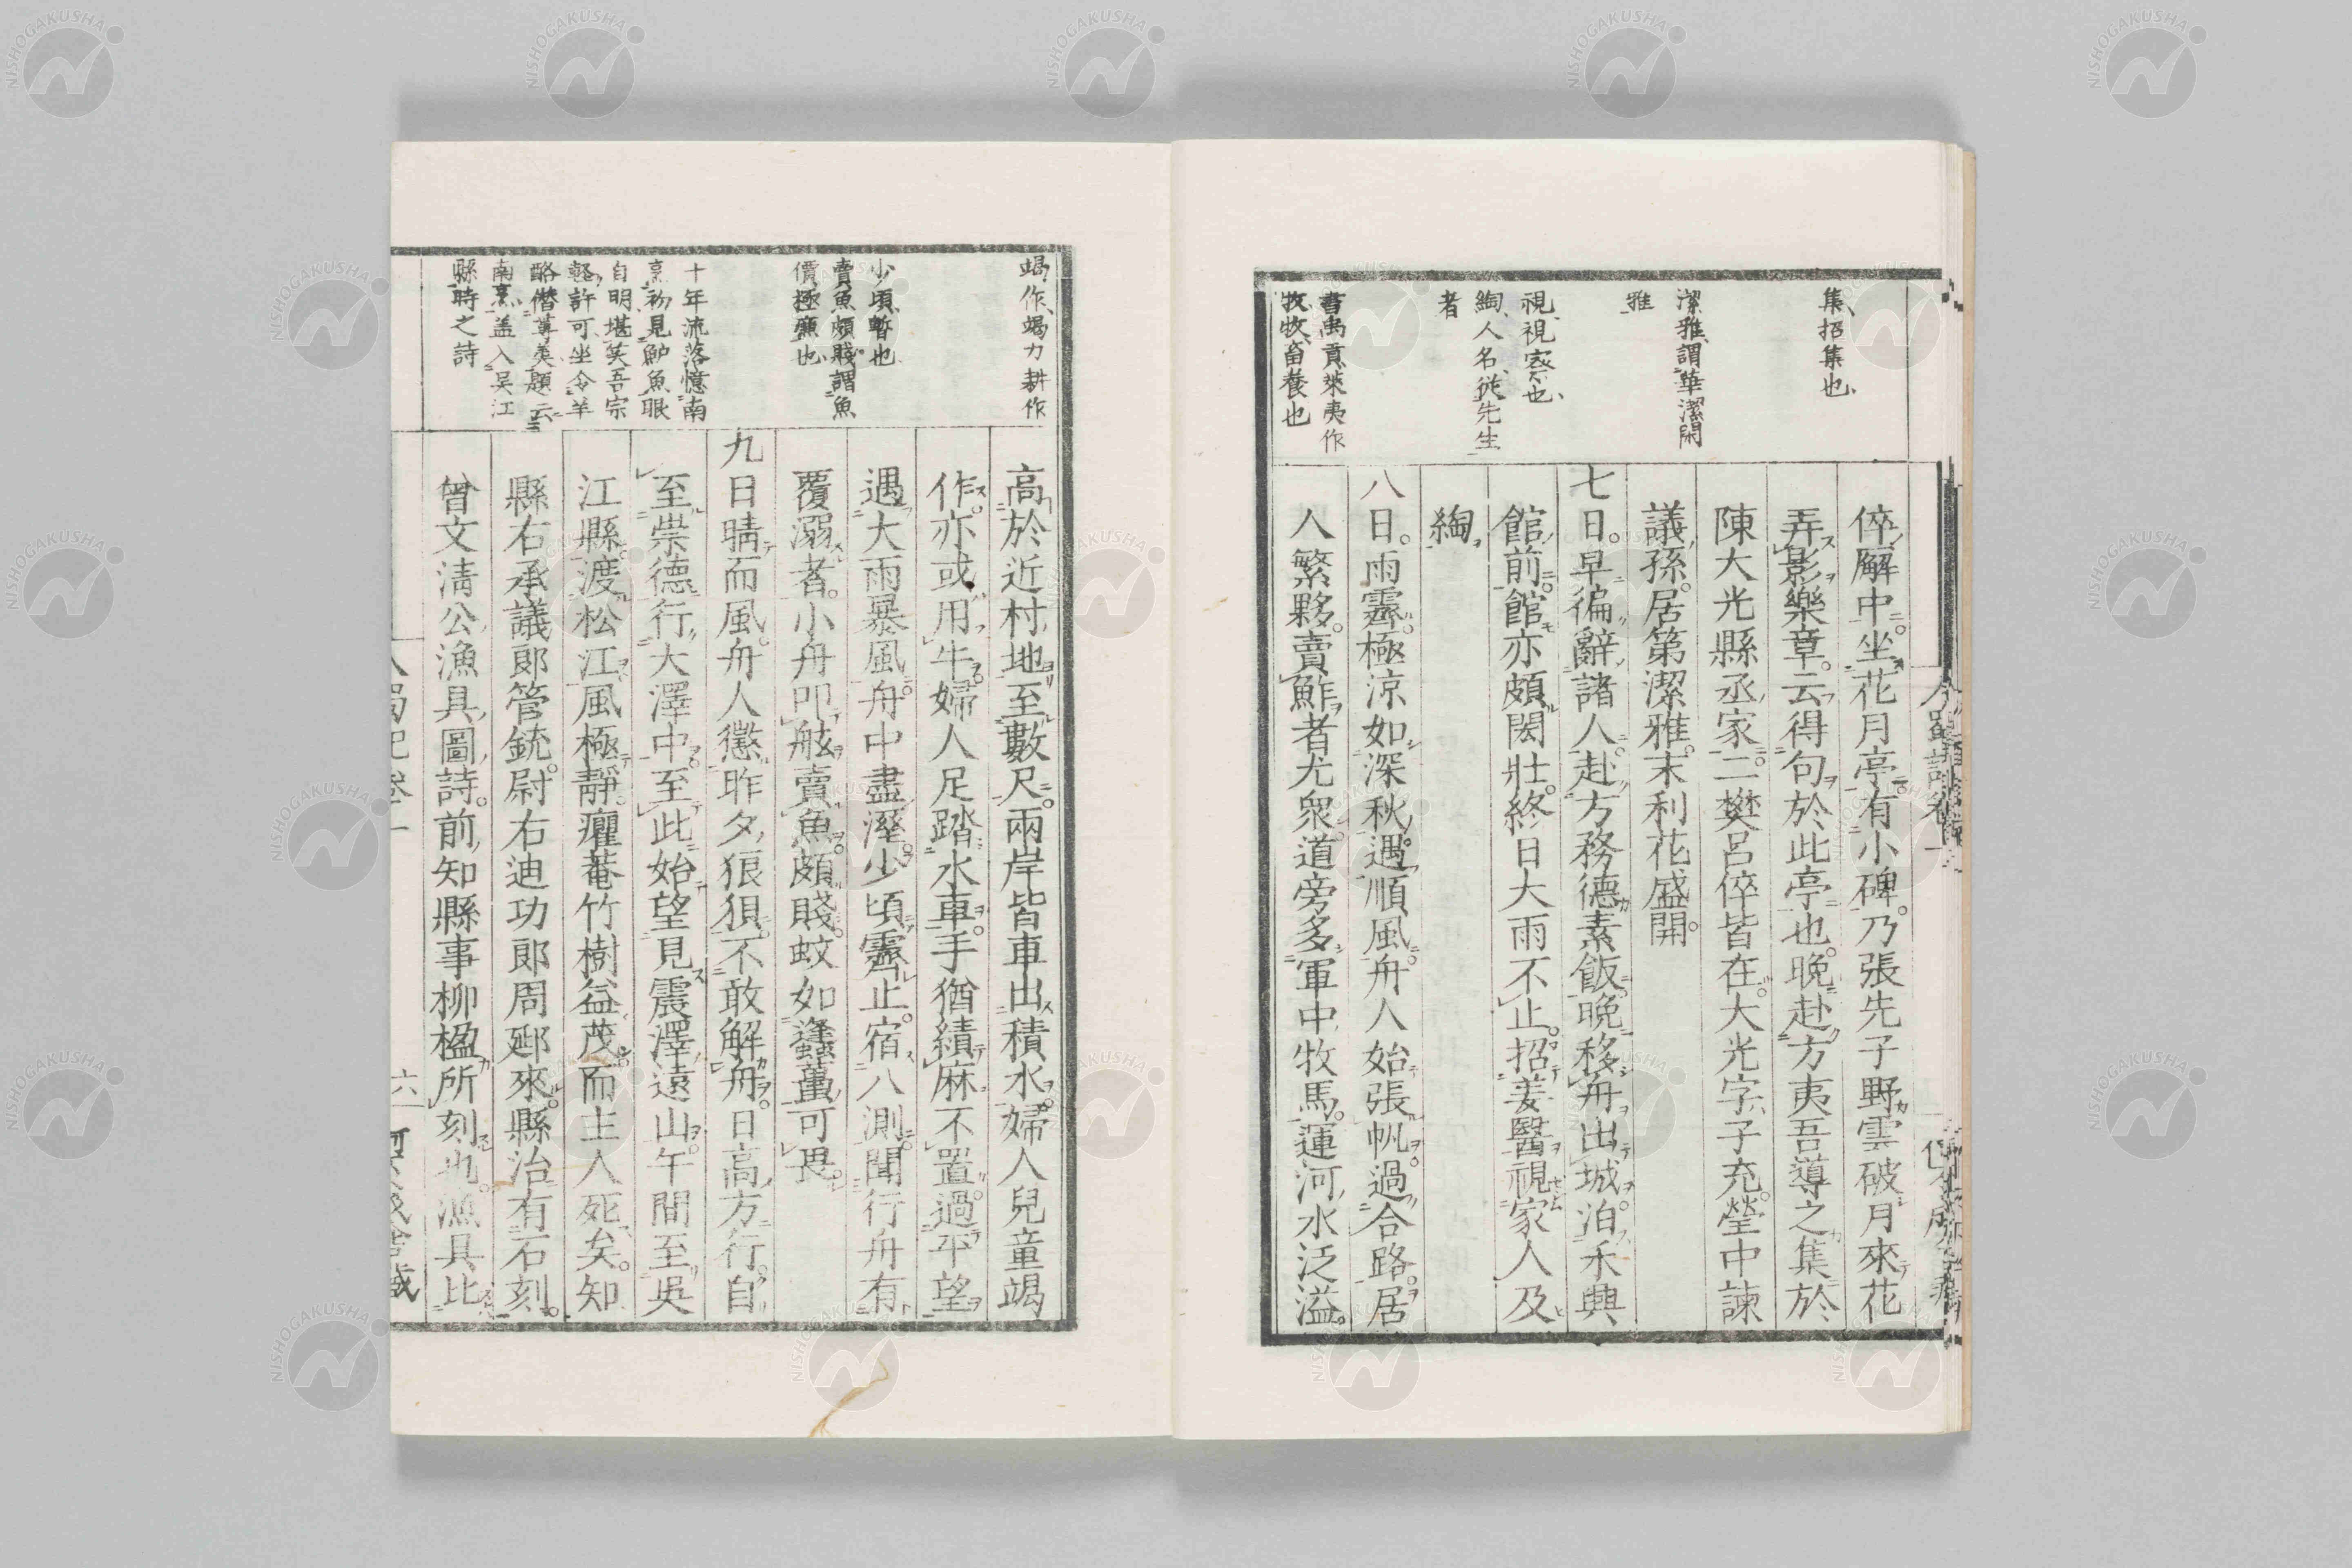 集、招集也、
潔雅、謂華潔閑
雅
視、視察也、
綯、人名、從先生
者
書禹貢萊夷作
牧、牧畜養也
倅廨中。坐花月亭。有小碑。乃張先子野雲破月來花
弄影樂章。云得句於此亭也。晚赴方夷吾導之集於
陳大光縣丞家。二樊呂倅皆在。大光字子充。瑩中諫
議孫。居第潔雅。末利花盛開。
七日。早徧辭諸人。赴方務德素飯。晚移舟出城。泊禾興
館前。館亦頗閎壯。終日大雨不止。招姜醫視家人及
綯。
八日。雨霽。極涼如深秋。遇順風。舟人始張帆。過合路。居
人繁夥。賣鮓者尤衆。道旁多軍中牧馬。運河水泛溢。
竭作、竭力耕作
少頃、暫也、
賣魚頗賤、謂魚
價極廉也
十年流落憶南
烹、初見鱸魚眼
自明、堪笑吾宗
輕許可、坐令羊
酪僭蓴羹、題云
南烹、盖入吴江
縣時之詩
高於近村地至數尺。兩岸皆車出積水。婦人兒童竭
作。亦或用牛。婦人足踏水車。手猶績麻不置。過平望。
遇大雨暴風。舟中盡溼。少頃霽止。宿八測。聞行舟有
覆溺者。小舟叩舷賣魚。頗賤。蚊如蠭蠆可畏。
九日晴而風。舟人懲昨夕狼狽。不敢解舟。日高方行。自
至崇德行大澤中。至此始望見震澤遠山。午間至吳
江縣。渡松江。風極靜。癯菴竹樹益茂。而主人死矣。知
縣右承議郎管銃。尉右迪功郎周郔來。縣治有石刻。
曾文淸公漁具圖詩。前知縣事柳楹所刻也。漁具比
六